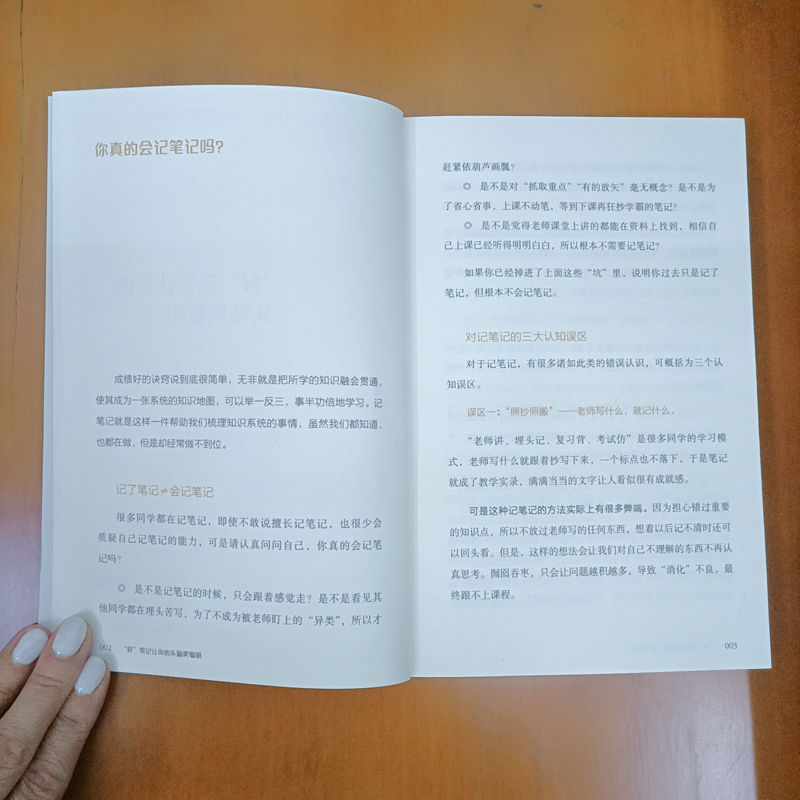 你真的会记笔记吗？
成绩好的诀窍说到底很简单，无非就是把所学的知识融会贯通，
使其成为一张系统的知识地图，可以举一反三，事半功倍地学习。记
笔记就是这样一件帮助我们梳理知识系统的事情，虽然我们都知道、
也都在做，但是却经常做不到位。
记了笔记≠会记笔记
很多同学都在记笔记，即使不敢说擅长记笔记，也很少会
质疑自己记笔记的能力，可是请认真问问自己，你真的会记笔
记吗？
◎ 是不是记笔记的时候，只会跟着感觉走？是不是看见其
他同学都在埋头苦写，为了不成为被老师盯上的“异类”，所以才
002 “好”笔记让你的头脑更聪明
赶紧依葫芦画瓢？
◎ 是不是对“抓取重点”“有的放矢”毫无概念？是不是为
了省心省事，上课不动笔，等到下课再狂抄学霸的笔记？
◎ 是不是觉得老师课堂上讲的都能在资料上找到，相信自
己上课已经听得明明白白，所以根本不需要记笔记？
如果你已经掉进了上面这些“坑”里，说明你过去只是记了
笔记，但根本不会记笔记。
对记笔记的三大认知误区
对于记笔记，有很多诸如此类的错误认识，可概括为三个认
知误区。
误区一：“照抄照搬”——老师写什么，就记什么。
“老师讲、埋头记、复习背、考试仿”是很多同学的学习模
式，老师写什么就跟着抄写下来，一个标点也不落下，于是笔记
就成了教学实录，满满当当的文字让人看似很有成就感。
可是这种记笔记的方法实际上有很多弊端。因为担心错过重要
的知识点，所以不放过老师写的任何东西，想着以后记不清时还可
以回头看。但是，这样的想法会让我们对自己不理解的东西不再认
真思考。囫囵吞枣，只会让问题越积越多，导致“消化”不良，最
终跟不上课程。
003